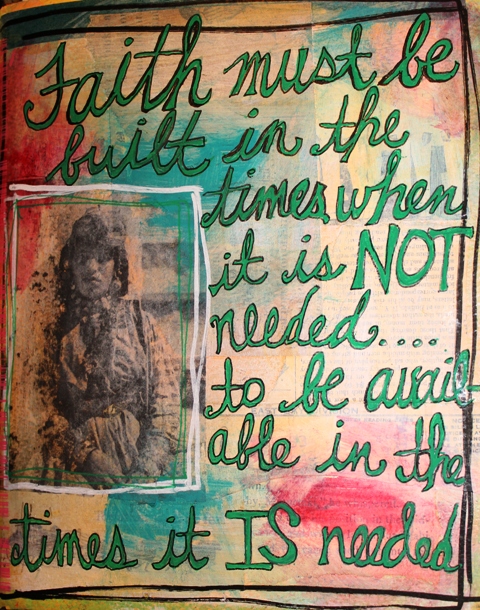 Faith must be
built in the
times when
it is NOT
needed....
to be avail-
able in the
times it IS needed